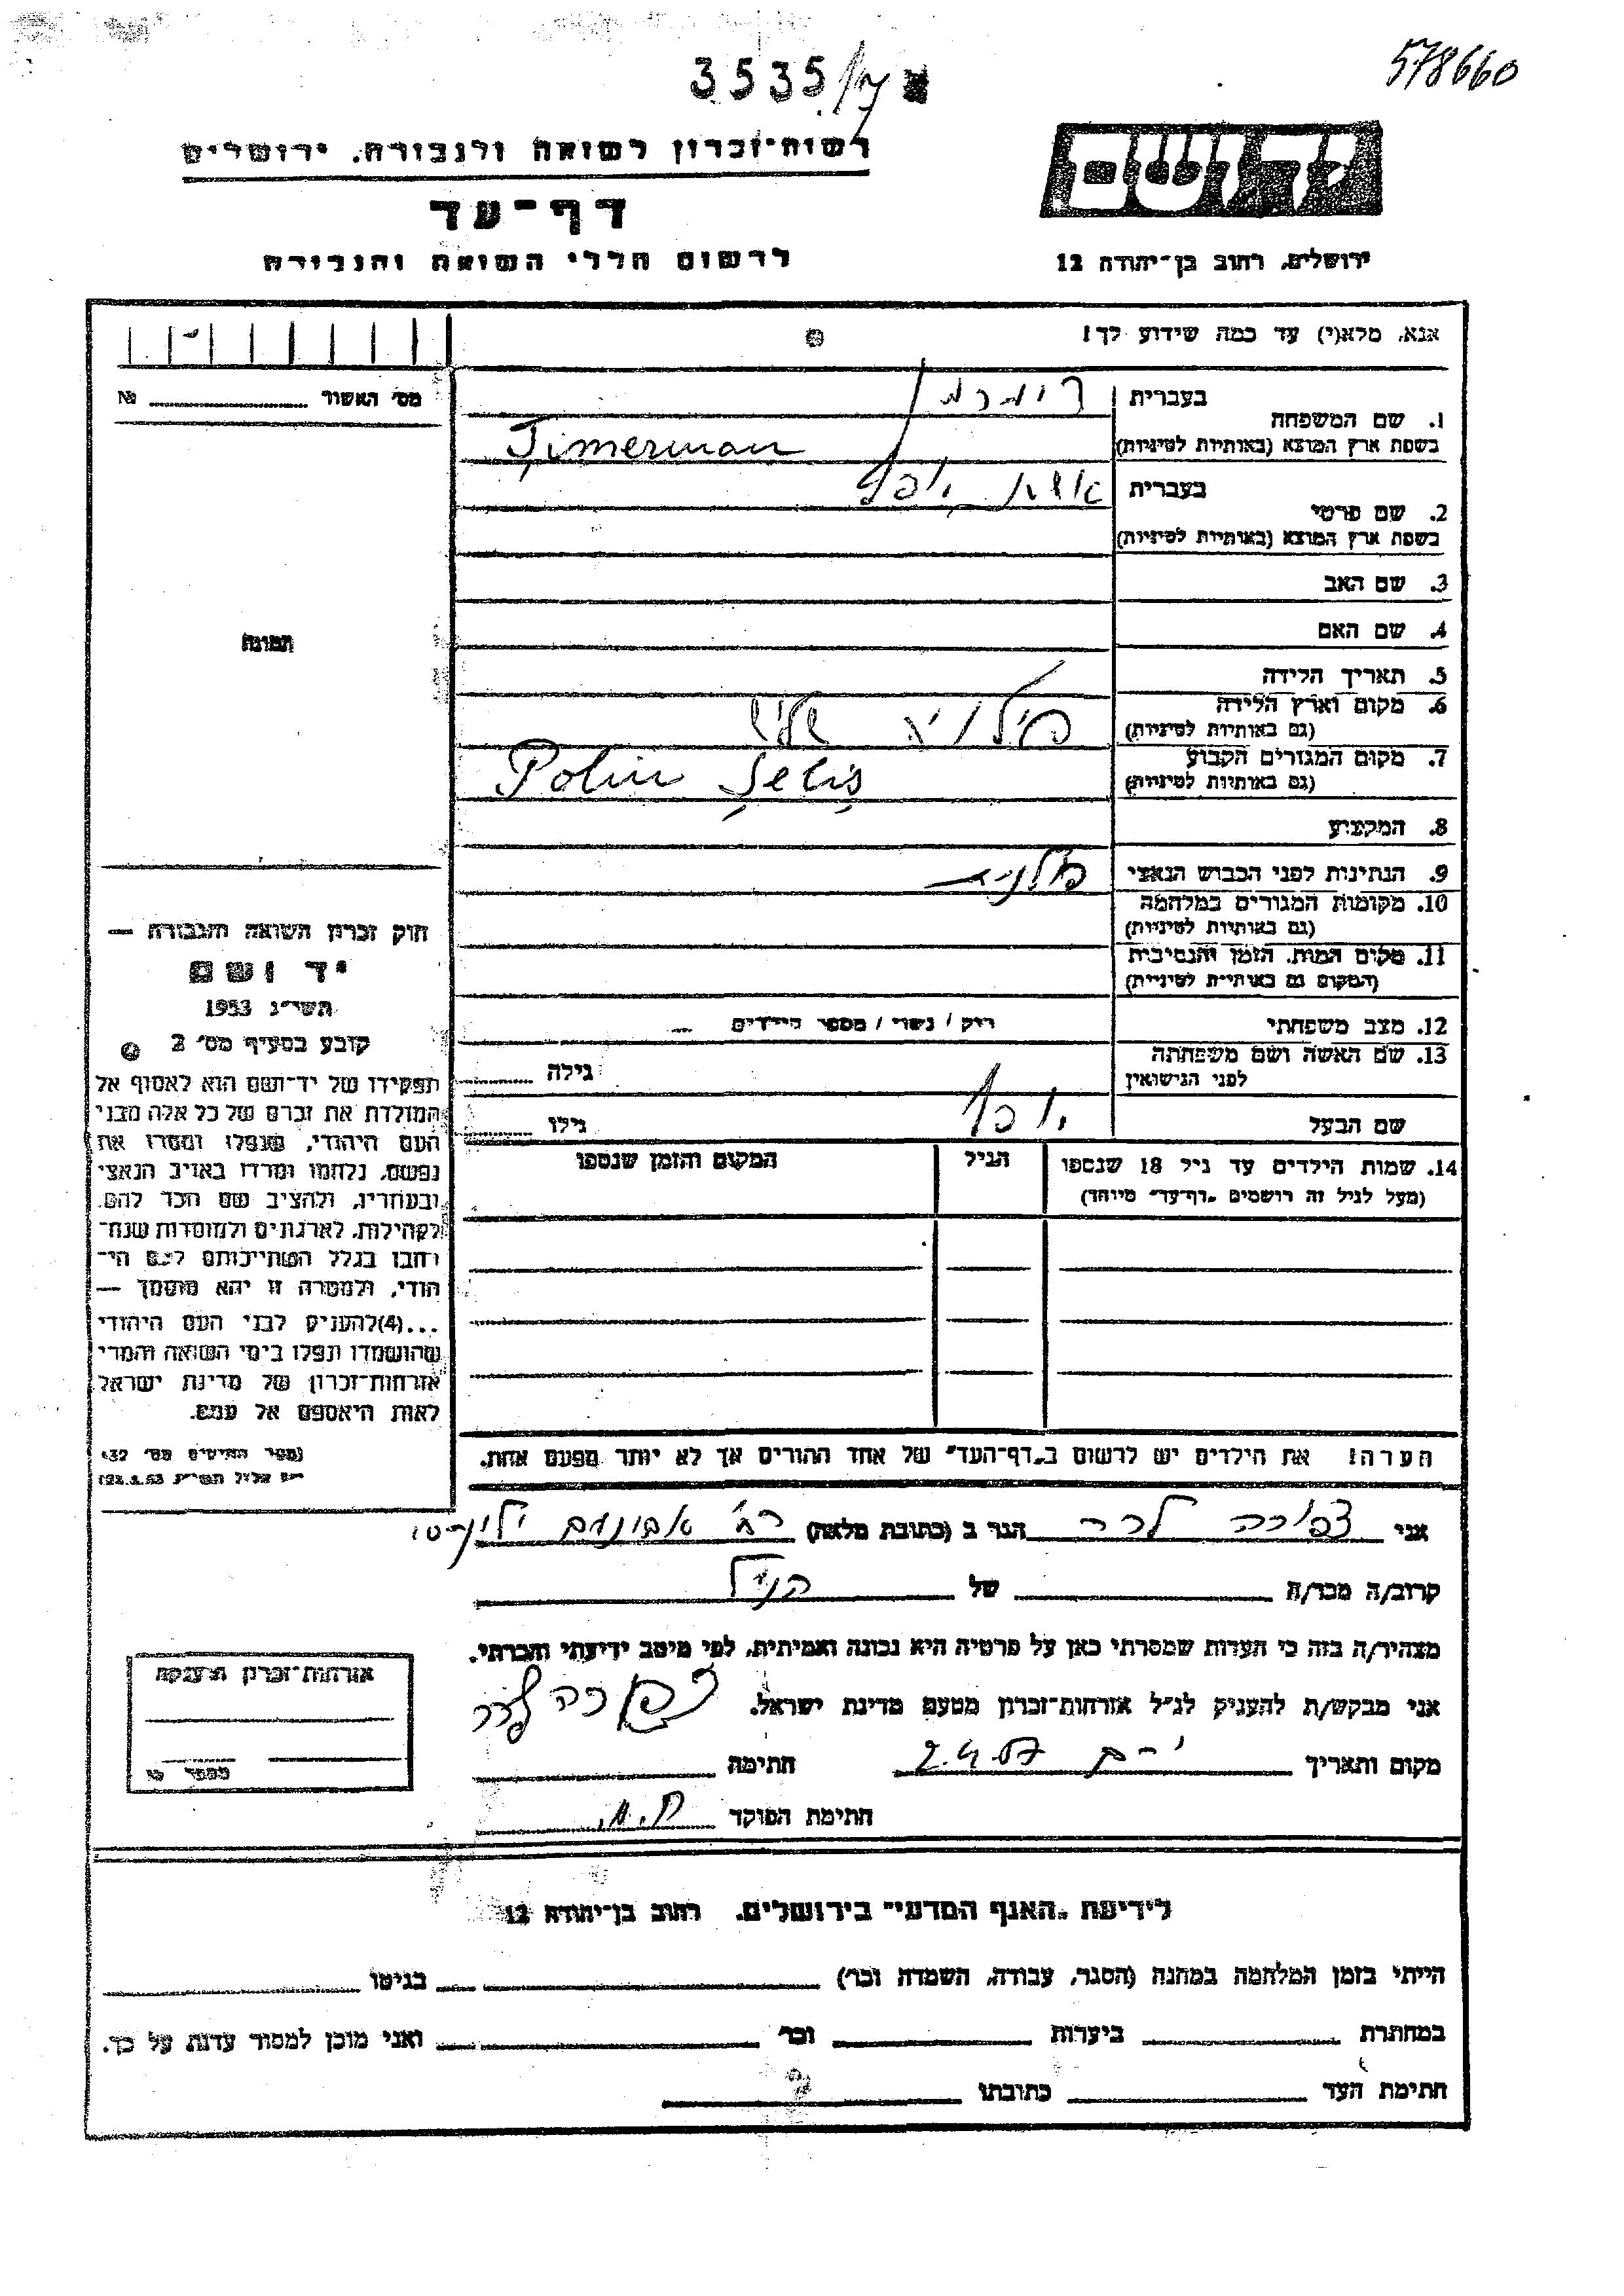 3535/7 א
578660
רשות־זכרון לשואה ולגבורה, ירושלים
דף־עד
לרשום חללי השואה והגבורה
ידושם
ירושלים, רחוב בן־יהודה 12
אנא, מלא(י) עד כמה שידוע לך!
מס׳ האשור № 
1. שם המשפחה
בעברית
בשפת ארץ המוצא (באותיות לטיניות)
Timerman
2. שם פרטי
בעברית אשת יוסף
בשפת ארץ המוצא (באותיות לטיניות)
3. שם האב
4. שם האם
5. תאריך הלידה
6. מקום וארץ הלידה
(גם באותיות לטיניות)
7. מקום המגורים הקבוע
(גם באותיות לטיניות)
Polin
8. המקצוע
9. הנתינות לפני הכבוש הנאצי
10. מקומות המגורים במלחמה
(גם באותיות לטיניות)
11. מקום המות, הזמן והנסיבות
(המקום גם באותיות לטיניות)
12. מצב משפחתי רוק / נשוי / מספר הילדים
13. שם האשה ושם משפחתה
לפני הנישואין
גילה
שם הבעל יוסף גילו
14. שמות הילדים עד גיל 18 שנספו
(מעל לגיל זה רושמים „דף־עד״ מיוחד)
הגיל
המקום והזמן שנספו
הערה! את הילדים יש לרשום ב„דף־העד״ של אחד ההורים אך לא יותר מפעם אחת.
התמונה
חוק זכרון השואה והגבורה —
יד ושם
תשי״ג 1953
קובע בסעיף מס׳ 2
תפקידו של יד־ושם הוא לאסוף אל
המולדת את זכרם של כל אלה מבני
העם היהודי, שנפלו ומסרו את
נפשם, נלחמו ומרדו באויב הנאצי
ובעוזריו, ולהציב שם וזכר להם,
לקהילות, לארגונים ולמוסדות שנח־
רבו בגלל השתייכותם לעם הי־
הודי, ולמטרה זו יהא מוסמך —
...(4)להעניק לבני העם היהודי
שהושמדו ונפלו בימי השואה והמרי
אזרחות־זכרון של מדינת ישראל
לאות היאספם אל עמם.
אני צפורה לרר הגר ב (כתובת מלאה) רח׳ אבינועם ילין
קרוב/ה מכר/ה של הנ״ל
מצהיר/ה בזה כי העדות שמסרתי כאן על פרטיה היא נכונה ואמיתית, לפי מיטב ידיעתי והכרתי.
אני מבקש/ת להעניק לנ״ל אזרחות־זכרון מטעם מדינת ישראל.
צפורה לרר
מקום ותאריך י־ם 2.4.57 חתימה
חתימת הפוקד
אזרחות־זכרון הוענקה
מספר №
לידיעת „האגף המדעי״ בירושלים, רחוב בן־יהודה 12
הייתי בזמן המלחמה במחנה (הסגר, עבודה, השמדה וכו׳) בגיטו
במחתרת ביערות וכו׳ ואני מוכן למסור עדות על כך.
חתימת העד כתובתו